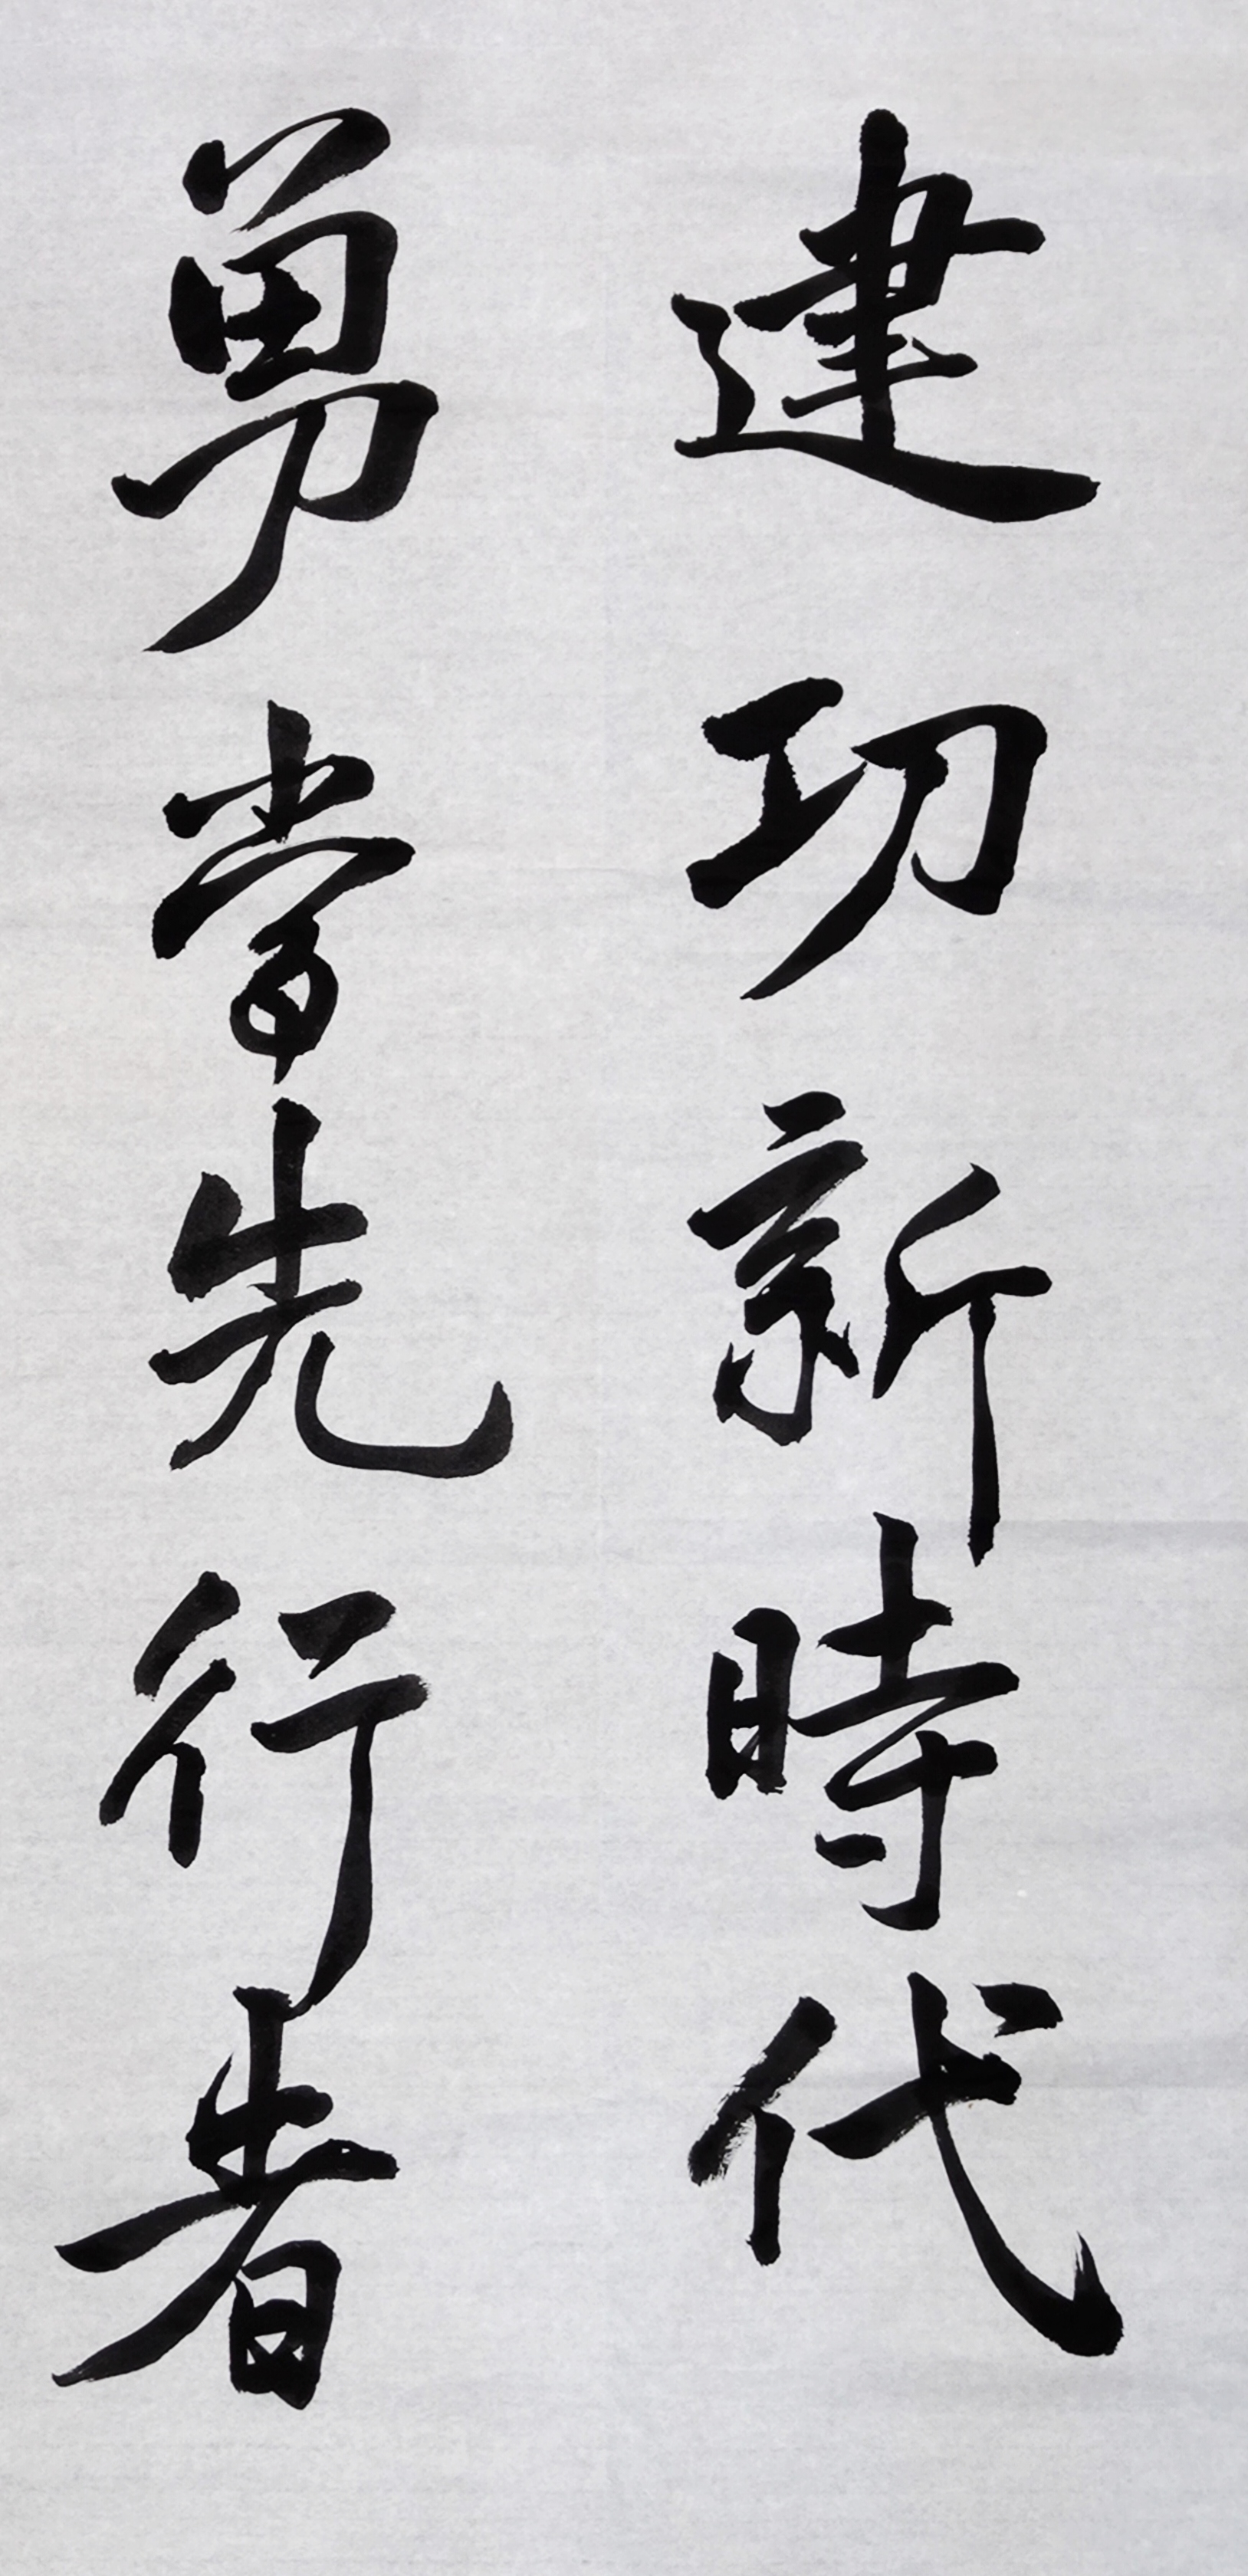 建功新時代
勇當先行者